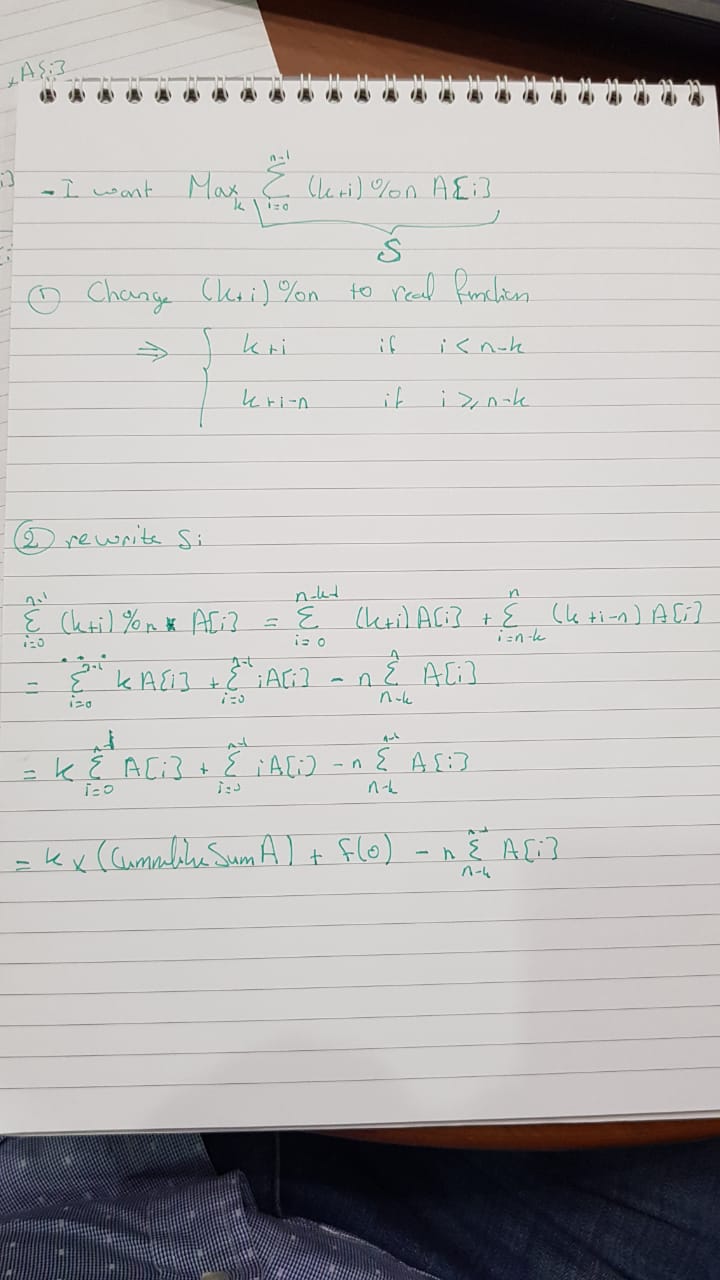 * A[i]
- I want Max_k Σ_{i=0}^{n-1} (k+i)%n A[i]
S
① Change (k+i)%n to real function
⇒ { k+i if i < n-k
k+i-n if i ⩾ n-k
② rewrite S:
Σ_{i=0}^{n-1} (k+i)%n * A[i] = Σ_{i=0}^{n-k-1} (k+i) A[i] + Σ_{i=n-k}^{n} (k+i-n) A[i]
= Σ_{i=0}^{n-1} k A[i] + Σ_{i=0}^{n-1} i A[i] - n Σ_{n-k}^{n} A[i]
= k Σ_{i=0}^{n-1} A[i] + Σ_{i=0}^{n-1} i A[i] - n Σ_{n-k}^{n-1} A[i]
= k x (Cummulitive Sum A) + f(0) - n Σ_{n-k}^{n-1} A[i]